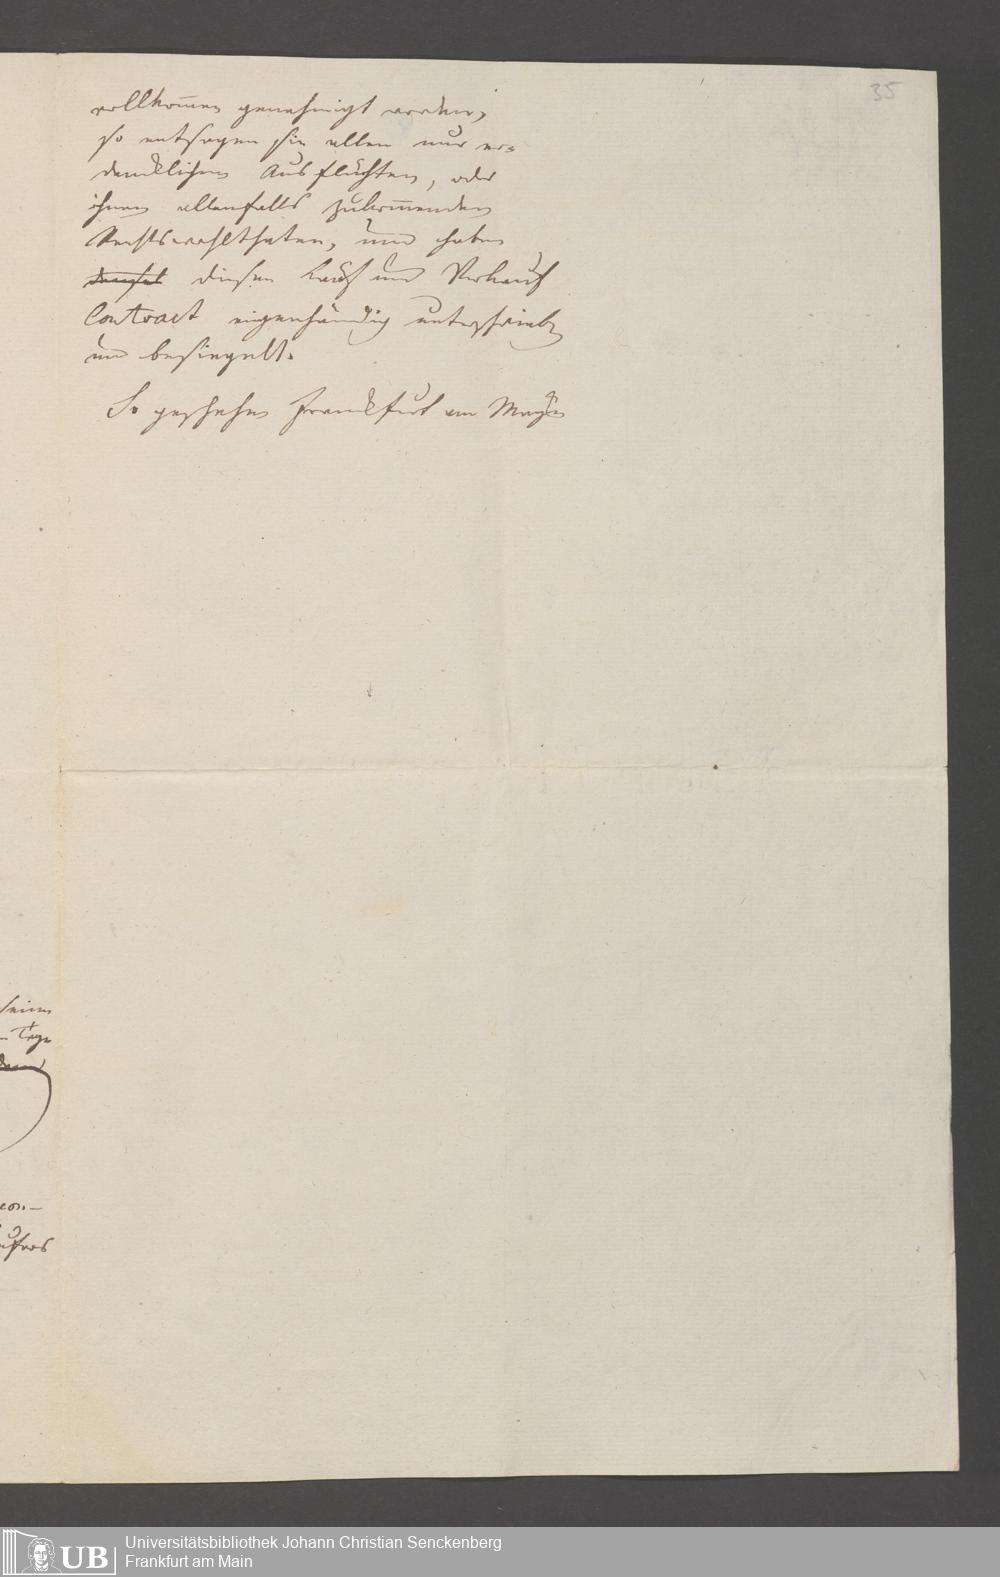 35
vollkom̅en genehmigt worden,
so entsagen sie allen nur er=
denklichen Ausflüchten, oder
ihnen allenfalls zukom̅enden
Rechtswohlthaten, und haben
diesen Kauf und Verkauf
Contract eigenhändig unterschrieben
und besiegelt.
So geschehen Frankfurt am Mayn
Universitätsbibliothek Johann Christian Senckenberg
Frankfurt am Main
UB